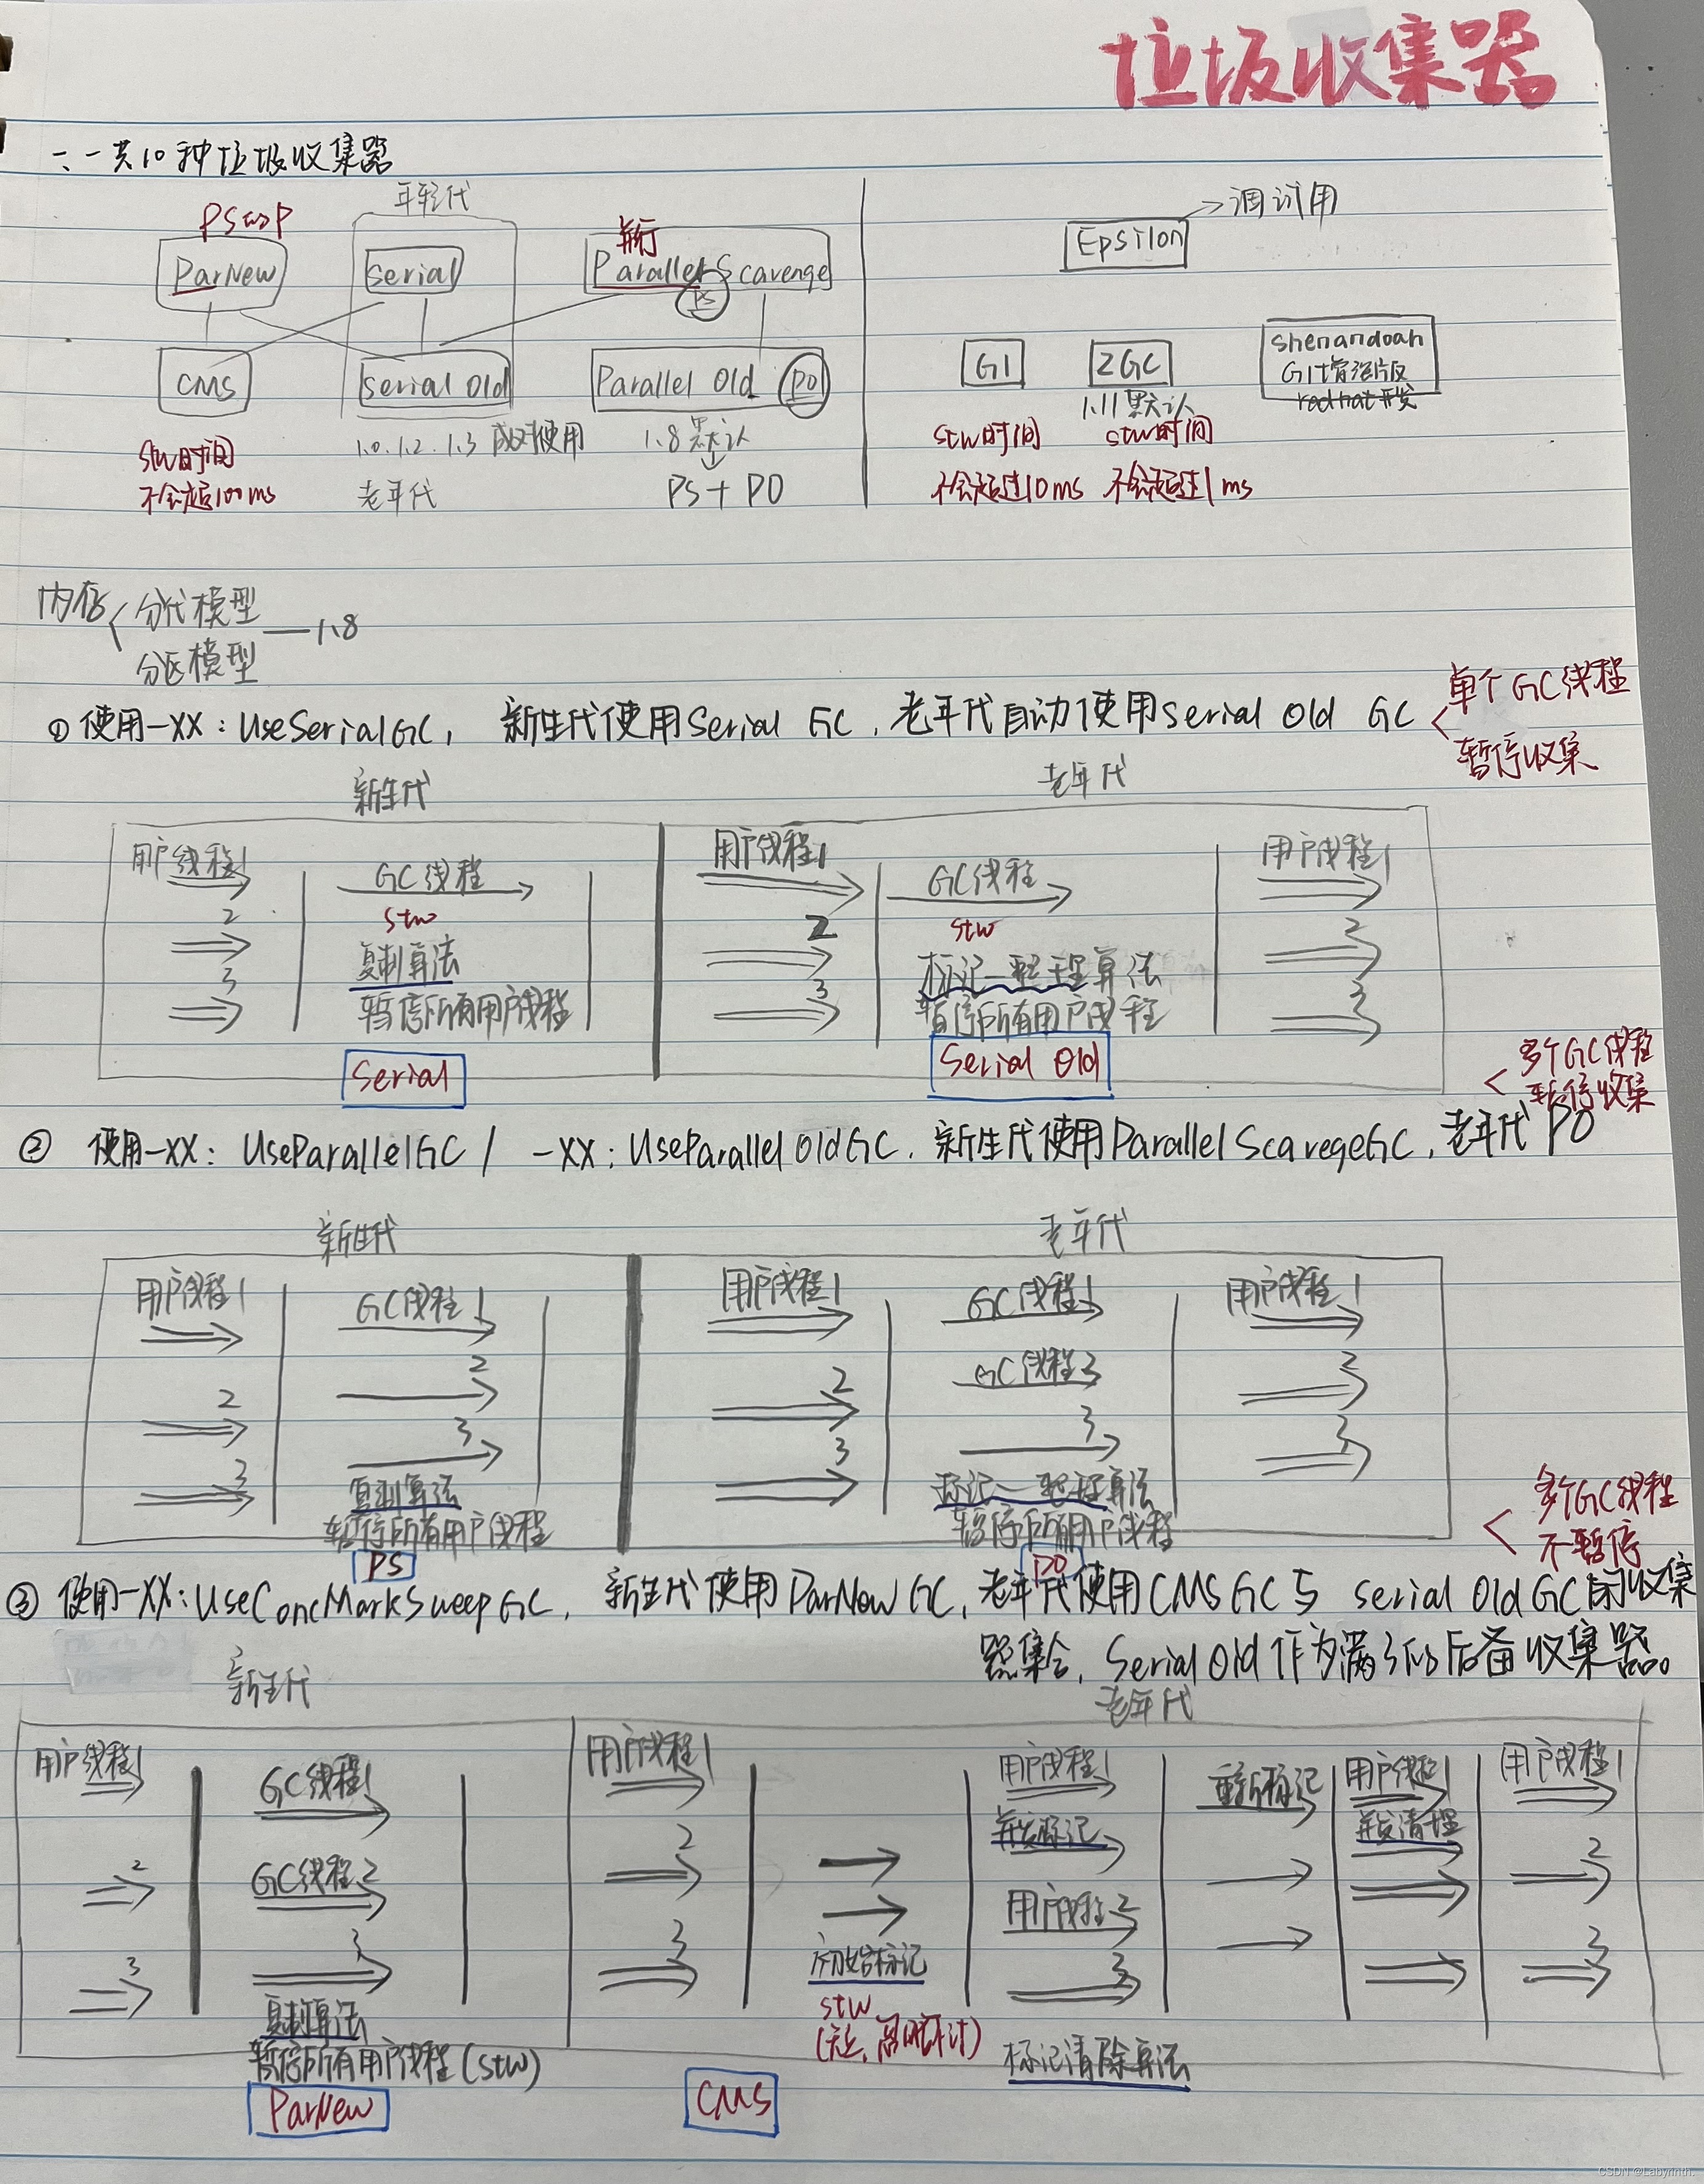 垃圾收集器
一、一共10种垃圾收集器
年轻代
PS的P
ParNew
Serial
并行
Parallel Scavenge
PS
CMS
Serial Old
Parallel Old PO
stw时间
不会超100ms
1.0.1.2.1.3 成对使用
老年代
1.8默认
PS + PO
Epsilon
调试用
G1
ZGC
shenandoah
G1增强版
redhat开发
1.11默认
stw时间
不会超过10ms
stw时间
不会超过1ms
内存
分代模型
分区模型
1.8
① 使用-XX:UseSerialGC, 新生代使用Serial GC,老年代自动使用Serial Old GC
单个GC线程
暂停收集
新生代
老年代
用户线程1
GC线程
用户线程1
GC线程
用户线程1
2
stw
2
stw
2
3
复制算法
3
标记-整理算法
3
暂停所有用户线程
暂停所有用户线程
Serial
Serial Old
多个GC线程
暂停收集
② 使用-XX: UseParallelGC / -XX: UseParallelOldGC, 新生代使用ParallelScavegeGC,老年代PO
新生代
老年代
用户线程1
GC线程1
用户线程1
GC线程1
用户线程1
2
2
2
GC线程2
2
3
3
3
3
3
复制算法
标记-整理算法
暂停所有用户线程
暂停所有用户线程
PS
PO
多个GC线程
不暂停
③ 使用-XX:UseConcMarkSweepGC, 新生代使用ParNewGC,老年代使用CMSGC与 serial OldGC的收集
器集合,Serial Old作为满了的后备收集器。
新生代
老年代
用户线程1
GC线程1
用户线程1
用户线程1
重新标记
用户线程1
用户线程1
并发标记
并发清理
2
GC线程2
2
用户线程2
2
3
3
3
3
3
初始标记
stw
复制算法
标记清除算法
暂停所有用户线程(stw)
ParNew
CMS
CSDN @Labyrinth